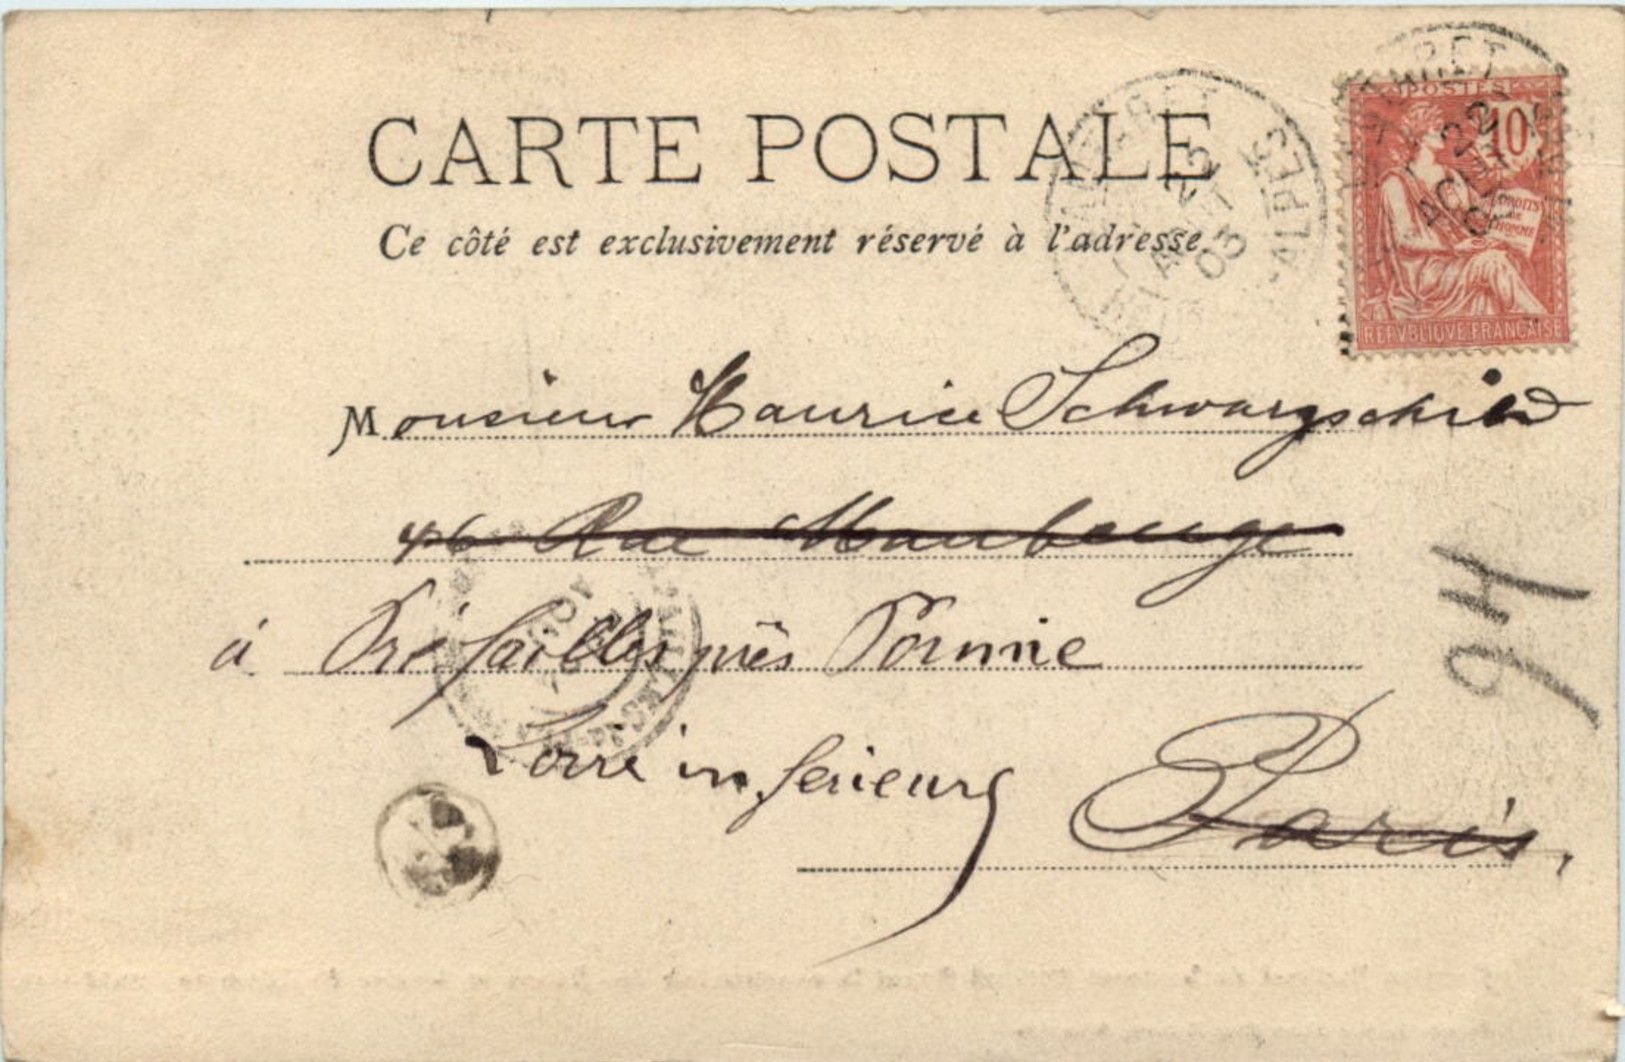 CARTE POSTALE
Ce côté est exclusivement réservé à l'adresse.
POSTES
10c
DROITS DE L'HOMME
REPVBLIQVE FRANÇAISE
22 AOUT 03
ALPES
Monsieur Maurice Schwarzschild
46 Rue Maubeuge
à Préfailles près Pornic
Loire inférieure
Paris.
94